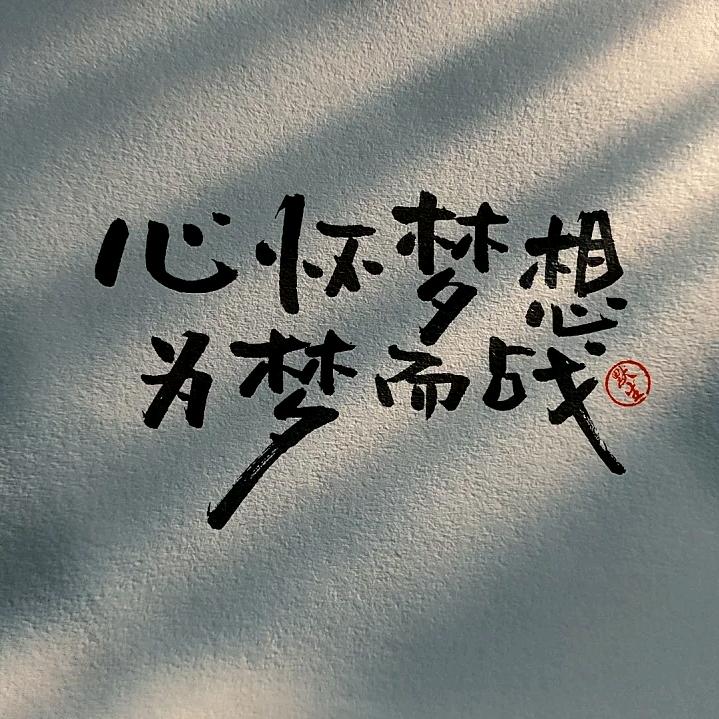 心怀梦想
为梦而战